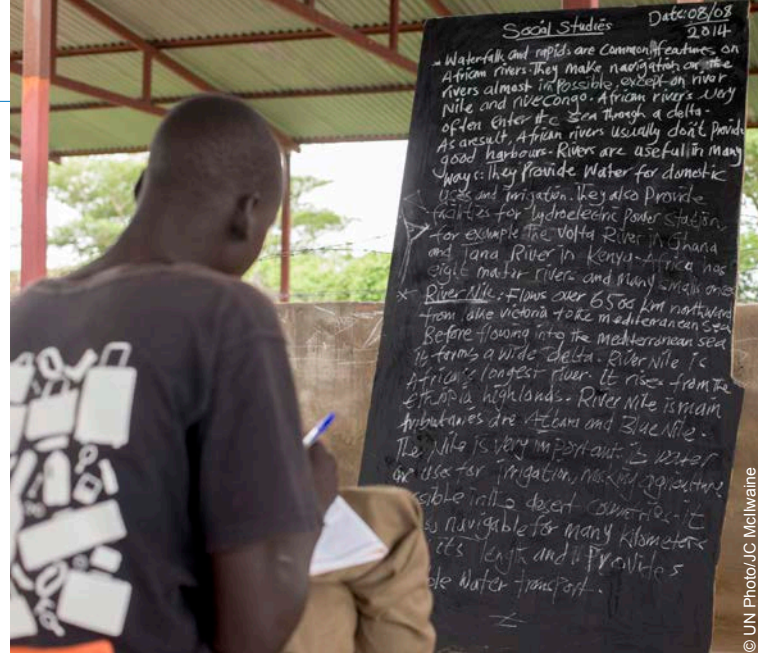 Social Studies
Date: 08/08
2014
Waterfalls and rapids are common features on
African rivers. They make navigation on the
rivers almost impossible, except on river
Nile and rive Congo. African rivers very
often enter the sea through a delta.
As aresult, African rivers usually don't provide
good harbours. Rivers are useful in many
ways: They Provide Water for domestic
uses and irrigation. They also Provide
facilities for hydroelectric power station
for example the Volta River in Ghana
and Tana River in Kenya. Africa has
eight major rivers and many small ones
* River Nile: Flows over 6500 km northward
from lake victoria to the mediterranean sea
Before flowing into the mediterranean sea
it forms a wide delta. River Nile is
Africa's longest river. It rises from the
Ethiopia highlands. River Nile is main
tributaries are Atbara and Blue Nile.
The Nile is very important is water
uses for irrigation, making agriculture
in the desert countries. It
navigable for many kilometers
its length and Provides
Water transport.
© UN Photo/JC McIlwaine